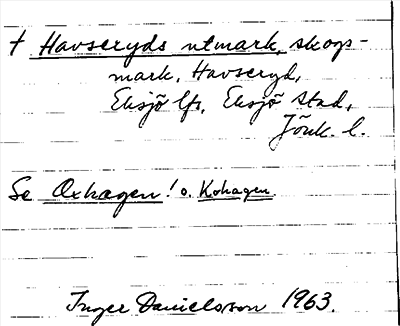 † Havseryds utmark, skogs-
mark, Havseryd,
Eksjö lfs, Eksjö stad,
Jönk. l.
Se Oxhagen! o. Kohagen.
Inger Danielsson 1963.